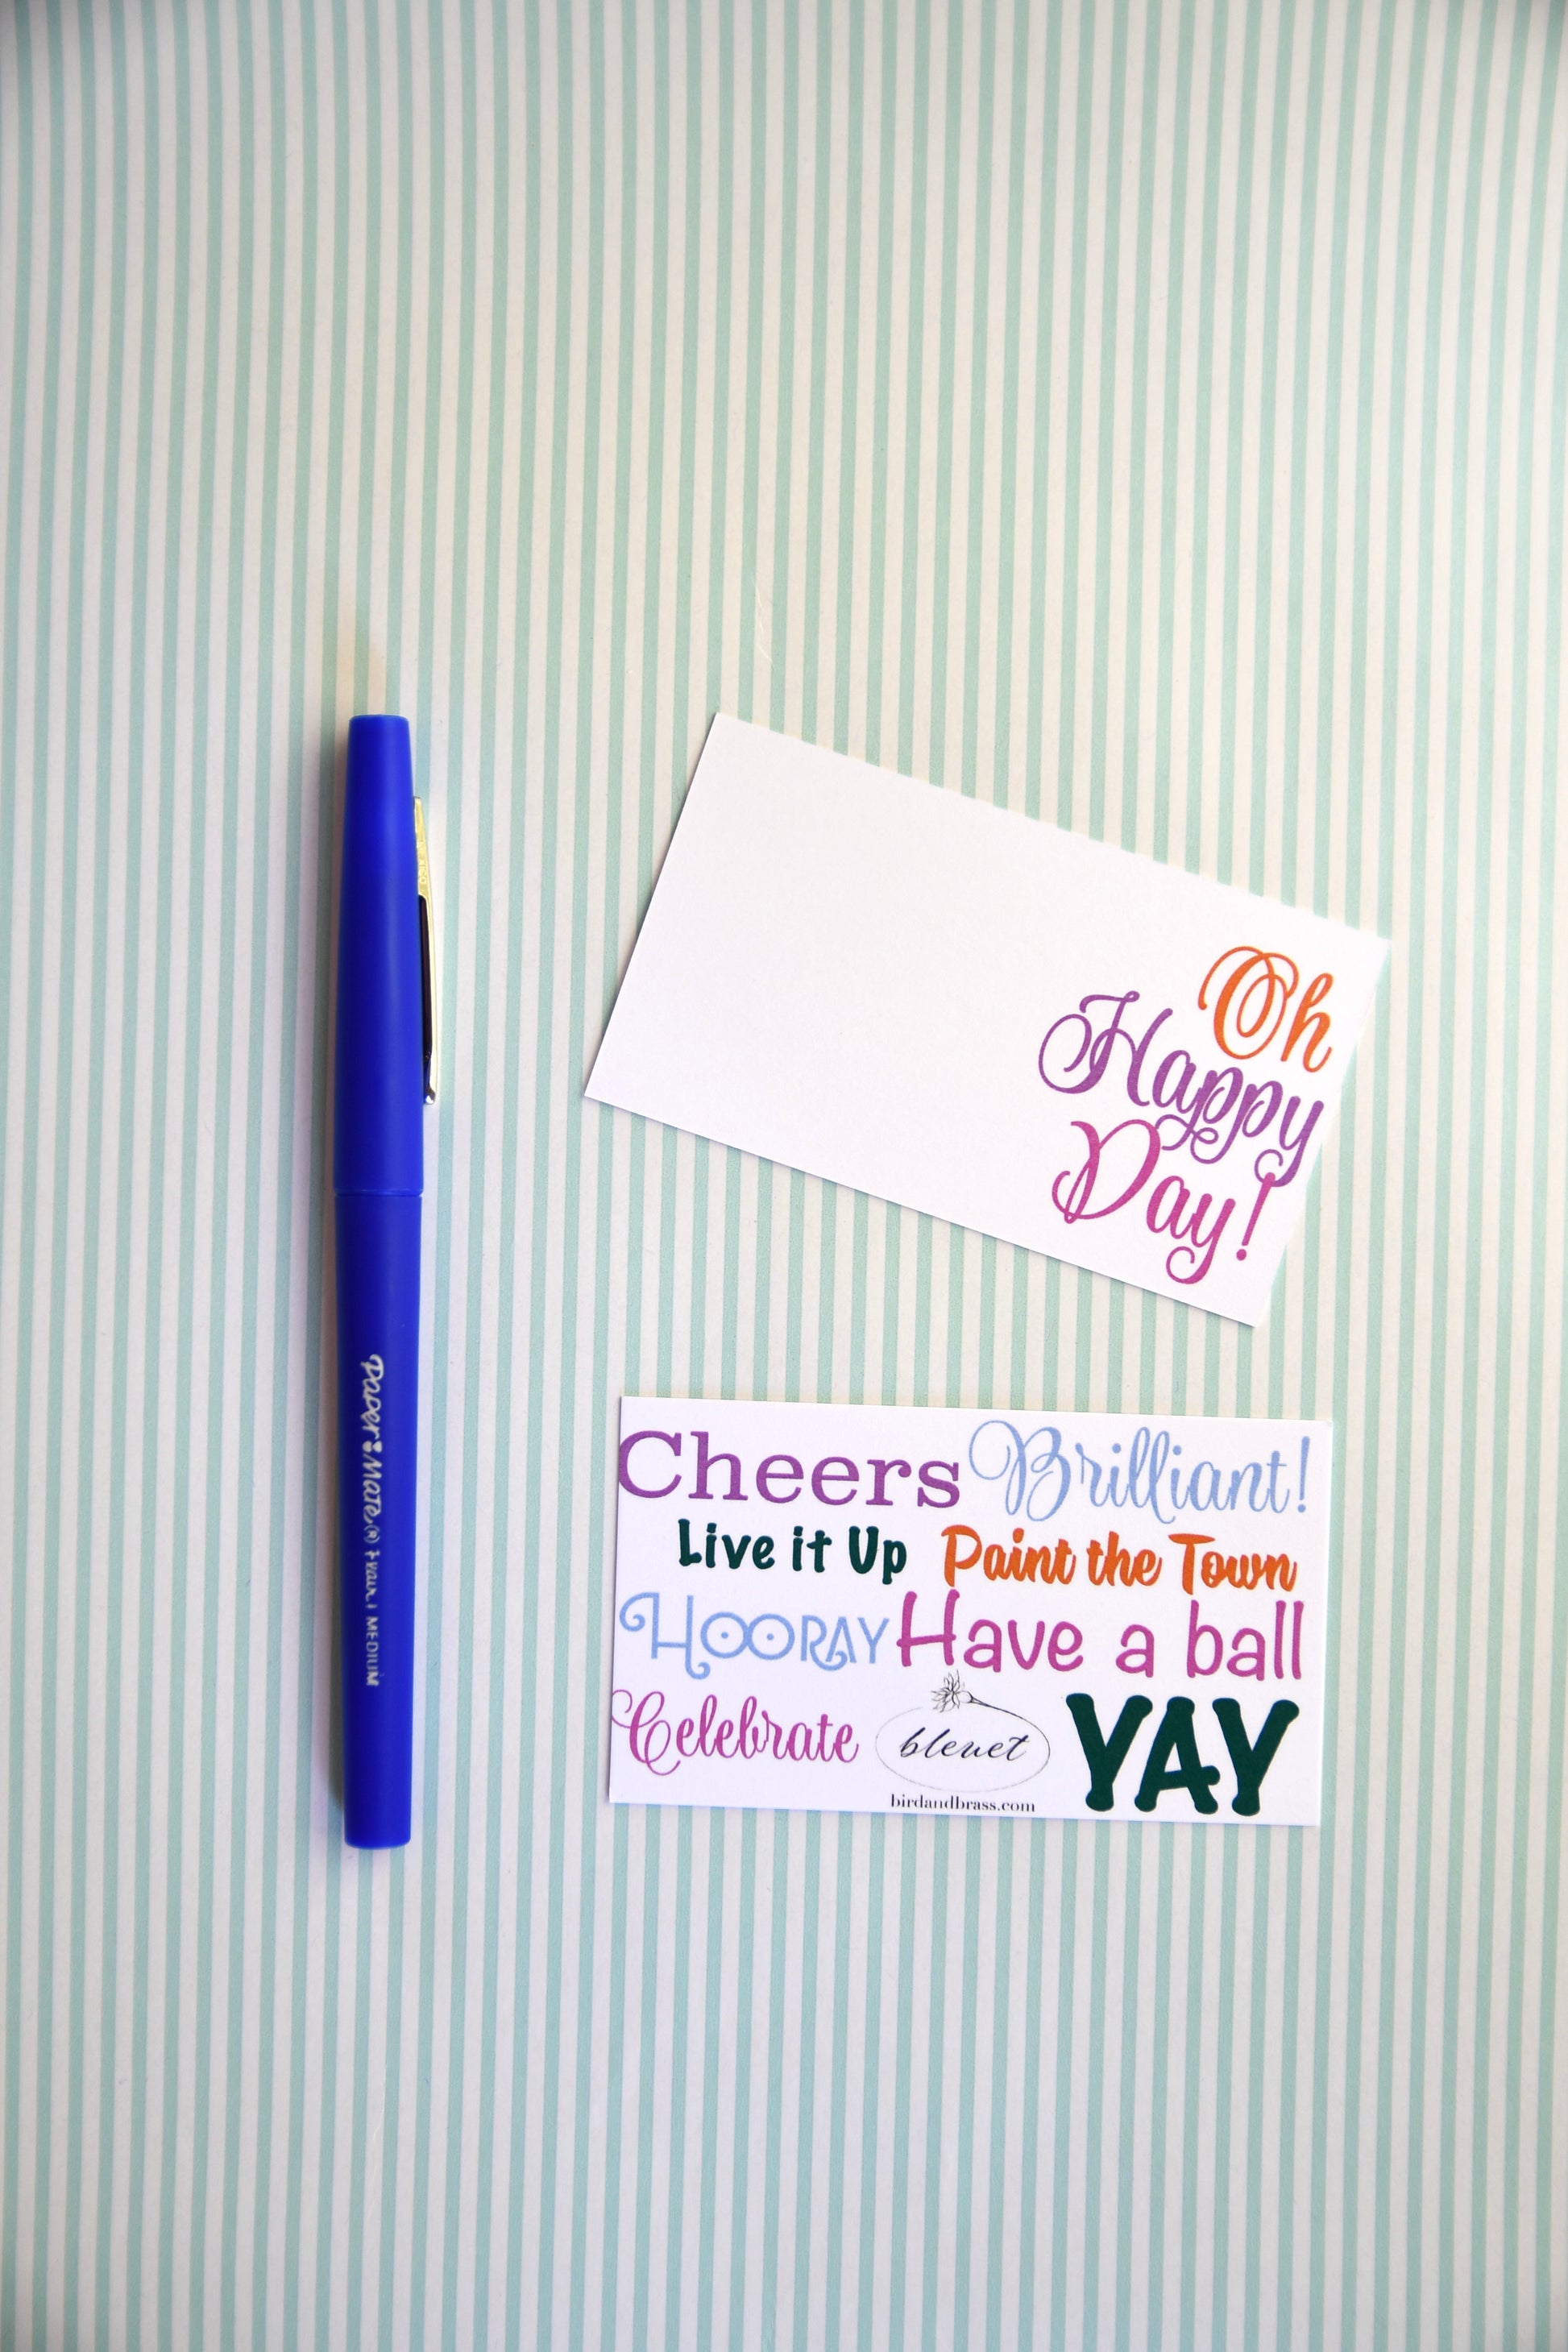 Oh
Happy
Day!
Paper Mate® Flair! MEDIUM
Cheers Brilliant!
Live it Up Paint the Town
HOORAY Have a ball
Celebrate bleuet YAY
birdandbrass.com